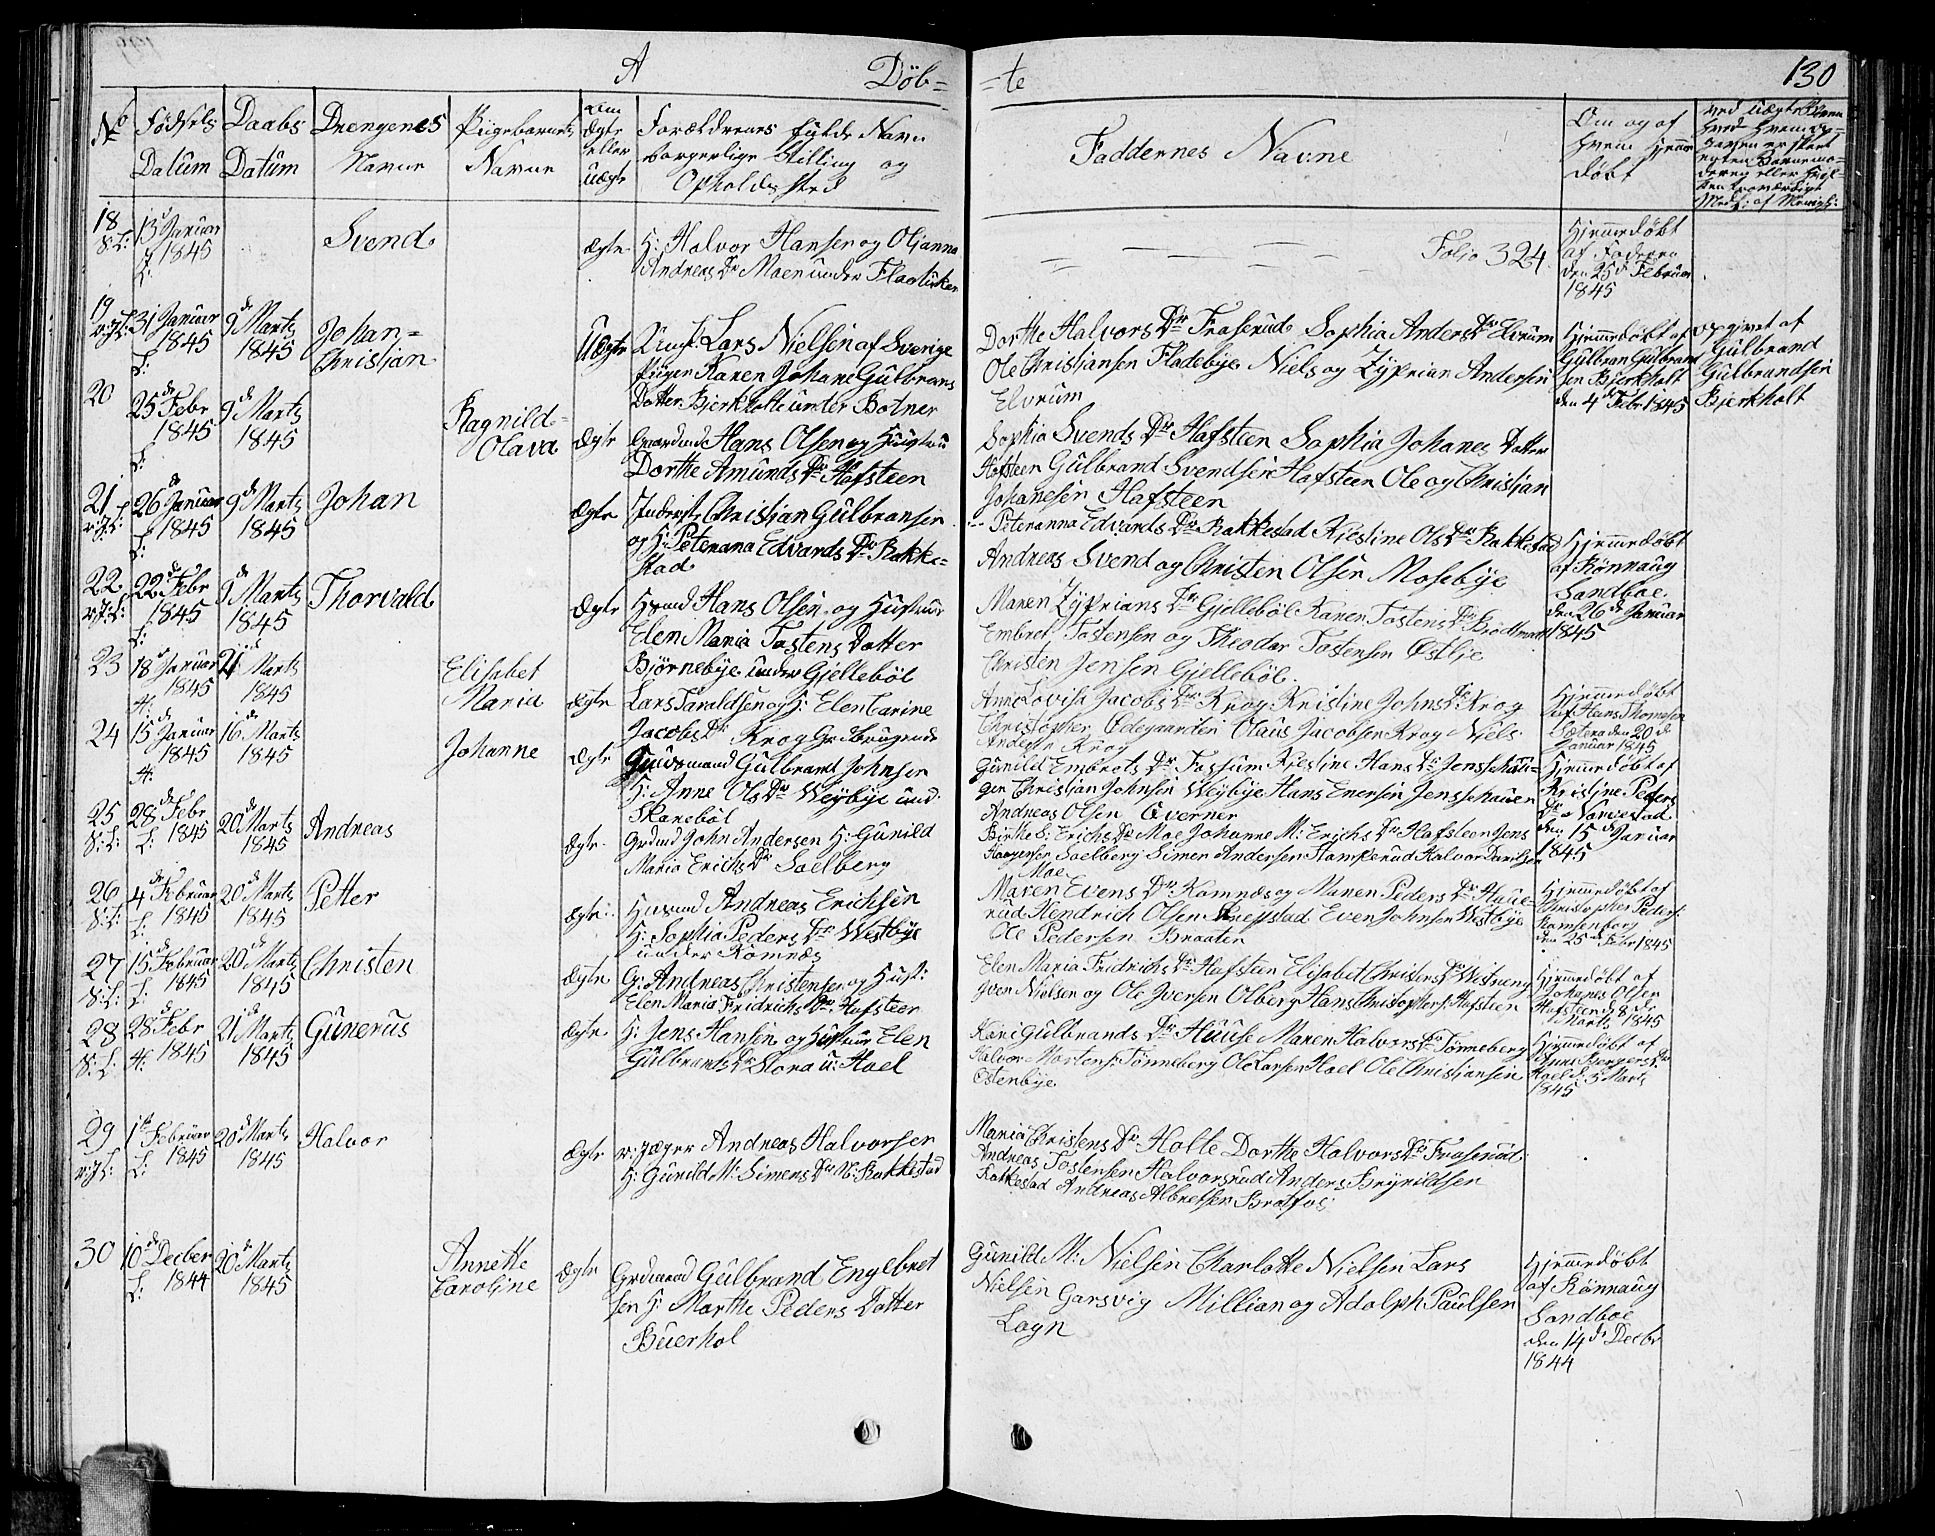 A Döb= =te 130
No Födsels Datum
Daabs Datum
Drengenes Navne
Pigebarnets Navne
Om Ægte eller Uægte
Forældrenes fulde Navn
borgerlige Stilling og
Opholds sted
Faddernes Navne
Om og af hvem hjemedöbt
18 S:L: 13 Januar 1845 L: Svend Ægte H: Halvor Hansen og Oljanna
Andreas Dr Moen under
Folio 324.
Hjemedöbt
af Faderen
den 25d Februar
1845
19 31 Januar 1845 L: 9de Marts 1845 Johan=
Christian
Uægte Lars Nielsen af Sverige
Pigen Karen Johane Gulbrans
Datter Bjerkholt under Botner
Dorthe Halvors Dr Fraserud Sophia Anders Dr Elvrum
Ole Christjansen Fladebye Niels og Zyprian Andersen
Elvrum
Hjemmedöbt af
Gulbran Gulbrand
sen Bjerkholt
den 4de Febr 1845
opgivet af
Gulbrand
Gulbrandsen
Bjerkholt
20 25de Febr 1845 L: 9de Marts 1845 Ragnild=
Olava
Ægte Gaardmd Hans Olsen og Hustru
Dorthe Amunds Dr Hafsteen
Sophia Svends Dr Hafsteen Sophia Johanes Datter
Hafsteen Gulbrand Svendsen Hafsteen Ole og Christjan
Johanesen Hafsteen
21 26de Januar 1845 L: 9de Marts 1845 Johan
Ægte Christjan Gulbransen
og H: Peternana Edvards Dr Rakke=
stad
Peteranna Edvards Dr Rakkestad Kjestine Ols Dr Rakkestad
Andreas Svend og Christen Olsen Mosebye
Hjemedöbt
af Rönnaug
Sandboe
den 26de Januar
1845
22 22de Febr 1845 L: 9de Marts 1845 Thorvald
Ægte Hsmd Hans Olsen og Hustrue
Elen Maria Tostens Datter
Björnebye under Gjelleböl
Maren Zyprians Dr Gjelleböl Karen Tostens Dr
Embret Tostensen og Theodor Tostensen Östbye
Christen Jensen Gjelleböl.
23 18d Januar 1845 H: 21 Marts 1845 Elisabet
Maria
Ægte Lars Taraldsen og H: Elen Carine
Jacobs Dr Krog Grdbrugende
Anne Lovisa Jacobs Dr Krog Kristine Johns Dr Krog
Christopher Ödegaarden Olaus Jacobsen Krog Niels
Andersen Krog
Hjemedöbt
af Hans Thomesen
den 20de
Januar 1845
24 15de Januar 1845 H: 16de Marts 1845 Johanne
Ægte Gulbrand Johnsen
H: Anne Ols Dr Weybye und.
Skaneböl
Gunild Embrets Dr Fossum Kjestine Hans Dr
gen Christjan Johnsen Weybye Hans Enersen
Andreas Olsen Qverner
Hjemedöbt af
Kristine Peders
Dr Varvestad
den 15de Januar
1845
25 S:L: 28de Febr 1845 L: 20de Marts 1845 Andreas
Ægte Grdmd John Andersen H: Gunild
Maria Erichs Dr Soelberg
Erichs Dr Moe Johanne M: Erichs Dr Hafsteen Jens
Soelberg Simen Andersen Halvor
Moe
26 S:L: 4de Februar 1845 L: 20de Marts 1845 Petter
Ægte Husmd Andreas Erichsen
H: Sophia Peders Dr Westbye
under Komnæs
Maren Evens Dr Komnæs og Maren Peders Dr Huse=
rud Hendrich Olsen Even Johnsen Westbye
Ole Pedersen Braaten
Hjemedöbt af
Christopher Peders:
Ramsenborg
den 25de Febr 1845
27 S:L: 15de Februar 1845 L: 20de Marts 1845 Christen
Ægte G: Andreas Christensen og Hust:
Elen Maria Fridrichs Dr Hafsteen
Elen Maria Fridrichs Dr Hafsteen Elisabet Christens Dr
Iven Nielsen og Ole Iversen Olberg Hans Christophers: Hafsteen
Hjemedöbt af
Johanes Olsen
Hafsteen d: 8de
Marts 1845
28 S:L: 28de Febr 1845 H: 21de Marts 1845 Gunerus
Ægte H: Jens Hansen og Hustrue Elen
Gulbrands Dr Stora u: Hoel
Kari Gulbrands Dr Huuse Maren Halvors Dr Tönneberg
Halvor Mortens: Tönneberg Ole Larsen Hoel Ole Christjansen
Östenbye
Hjemedöbt af
Anne Bergers Dr
Hoel d: 5 Marts
1845
29 1ste Februar 1845 L: 20de Marts 1845 Halvor
Ægte r: jæger Andreas Halvorsen
H: Gunild M: Simens Dr N: Rakkestad
Maria Christens Dr Holte Dorthe Halvors Dr Fraserud
Andreas Tostensen Halvorsrud Anders Brynildsen
Rakkestad Andreas Albretsen Bratfos
30 10de Decber 1844 L: 20de Marts 1845 Annette
Caroline
Ægte Grdmand Gulbrand Engebret
sen H: Marthe Peders Datter
Buerhol
Gunild M: Nielsen Charlotte Nielsen Lars
Nielsen Garsvig Millian og Adolph Paulsen
Løgn
Hjemedöbt
af Rönnaug
Sandboe
den 14de Decbr
1844